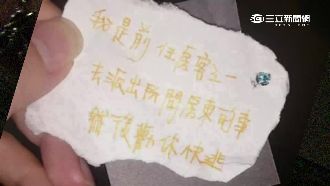 三立新聞網
我是前任房客之一
去派出所問房東的事
然後勸你快逃